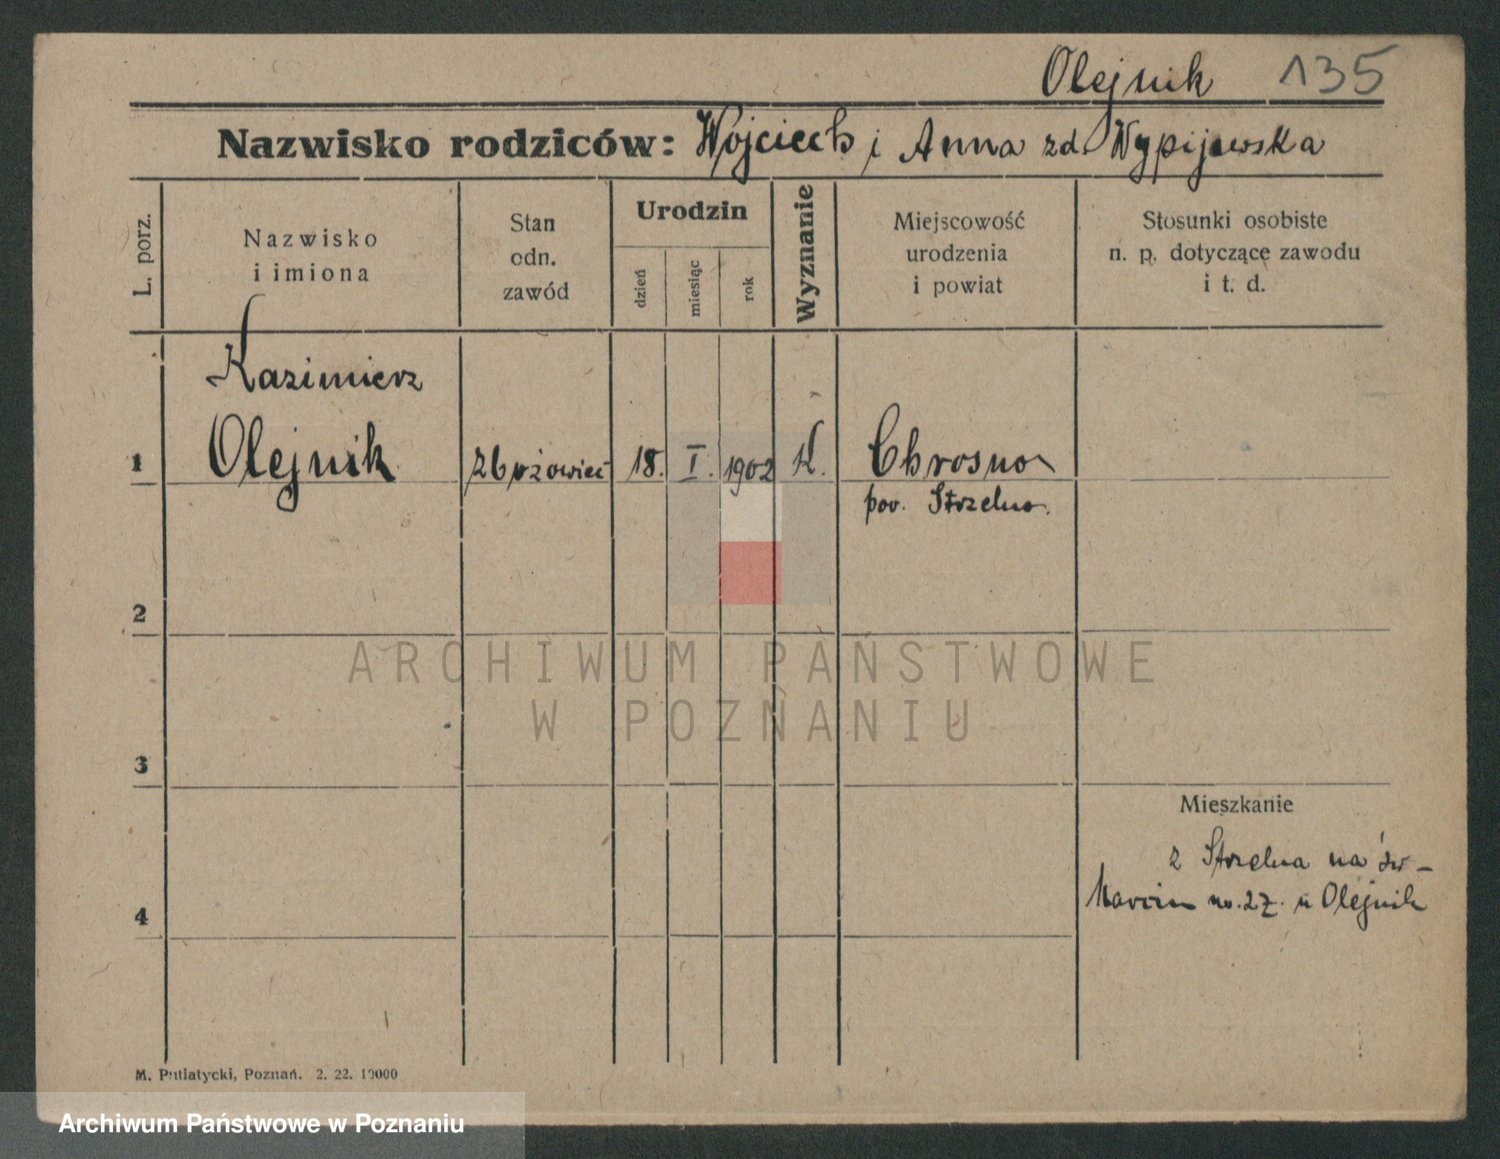 Olejnik 135
Nazwisko rodziców: Wojciech i Anna zd. Wypijewska
L. porz.
Nazwisko
i imiona
Stan
odn.
zawód
Urodzin
dzień
miesiąc
rok
Wyznanie
Miejscowość
urodzenia
i powiat
Stosunki osobiste
n. p. dotyczące zawodu
i t. d.
Kazimierz
1 Olejnik zbożowiec 18. I. 1902 K. Chrosno
pow. Strzelno.
2
3
4
Mieszkanie
z Strzelna na św.
Marcin no. 27. u Olejnik
M. Putiatycki, Poznań. 2. 22. 10000
ARCHIWUM PAŃSTWOWE
W POZNANIU
Archiwum Państwowe w Poznaniu